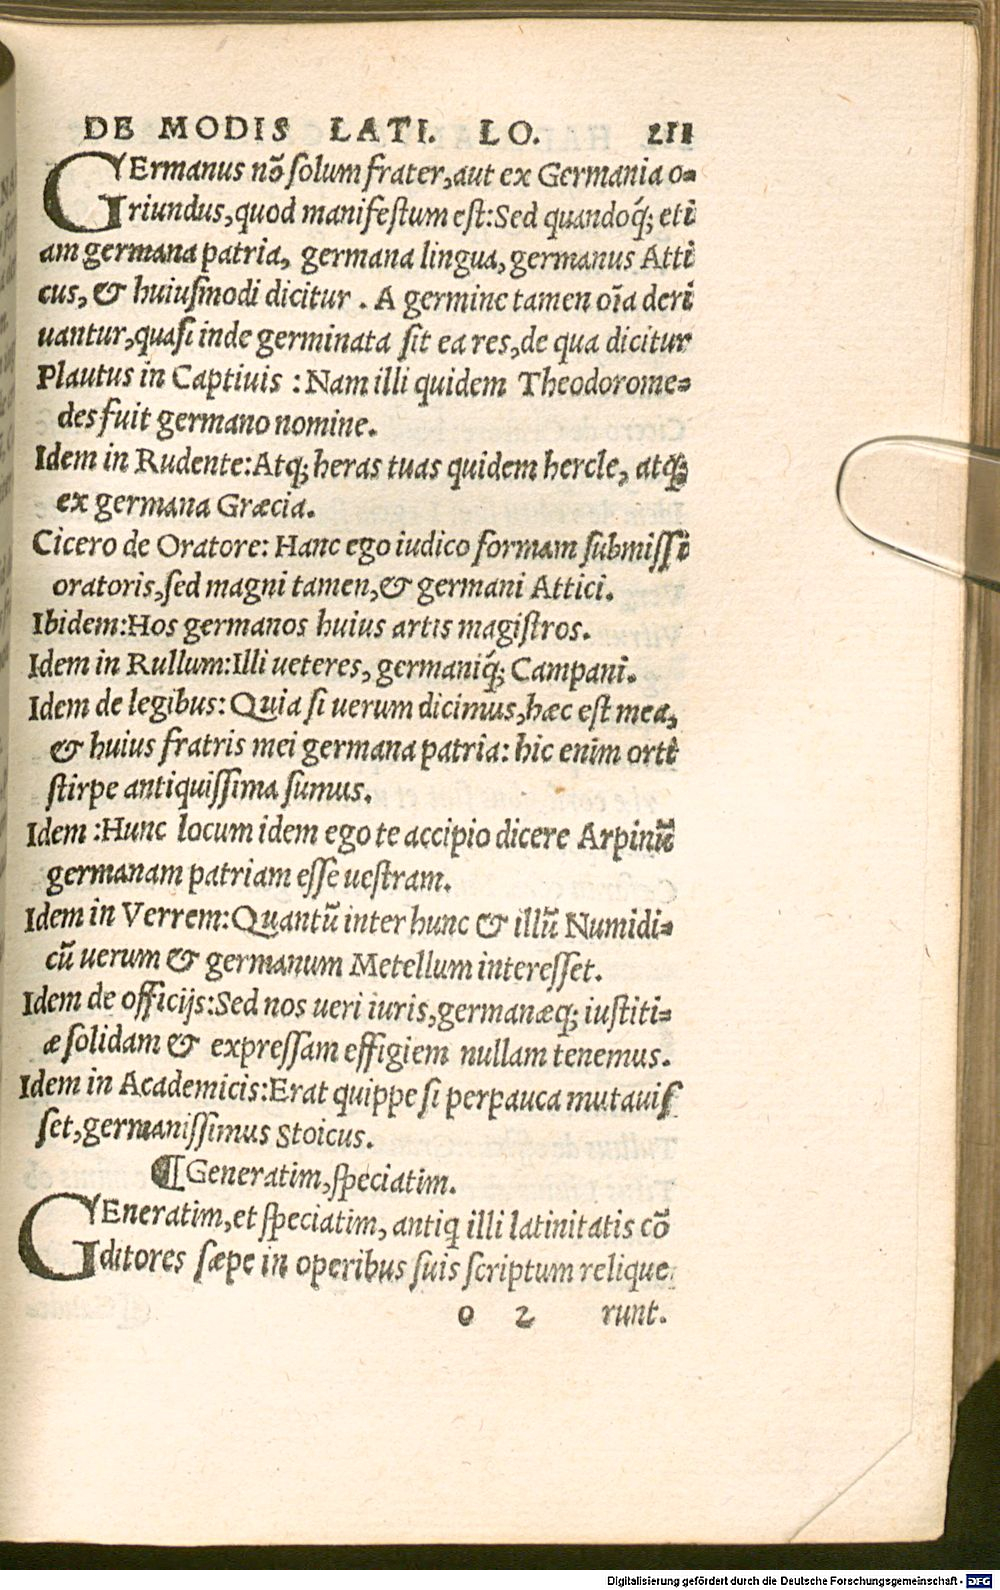 DE MODIS LATI. LO. 211
GErmanus nõ ſolum frater, aut ex Germania o=
riundus, quod manifeſtum eſt: Sed quandoq́; eti
am germana patria, germana lingua, germanus Atti
cus, & huiuſmodi dicitur. A germine tamen oĩa deri
uantur, quaſi inde germinata ſit ea res, de qua dicitur
Plautus in Captiuis : Nam illi quidem Theodorome=
des fuit germano nomine.
Idem in Rudente: Atq; heras tuas quidem hercle, atq́;
ex germana Græcia.
Cicero de Oratore: Hanc ego iudico formam ſubmiſſi
oratoris, ſed magni tamen, & germani Attici.
Ibidem: Hos germanos huius artis magiſtros.
Idem in Rullum: Illi ueteres, germaniq́; Campani.
Idem de legibus: Quia ſi uerum dicimus, hæc eſt mea,
& huius fratris mei germana patria: hic enim orti
ſtirpe antiquiſſima ſumus.
Idem : Hunc locum idem ego te accipio dicere Arpinũ
germanam patriam eſſe ueſtram.
Idem in Verrem: Quantũ inter hunc & illũ Numidi=
cũ uerum & germanum Metellum intereſſet.
Idem de officijs: Sed nos ueri iuris, germanæq; iuſtiti=
æ ſolidam & expreſſam effigiem nullam tenemus.
Idem in Academicis: Erat quippe ſi perpauca mutauiſ
ſet, germaniſſimus Stoicus.
¶ Generatim, ſpeciatim.
GEneratim, et ſpeciatim, antiq illi latinitatis cõ
ditores ſæpe in operibus ſuis ſcriptum relique
o 2 runt.
Digitalisierung gefördert durch die Deutsche Forschungsgemeinschaft - DFG